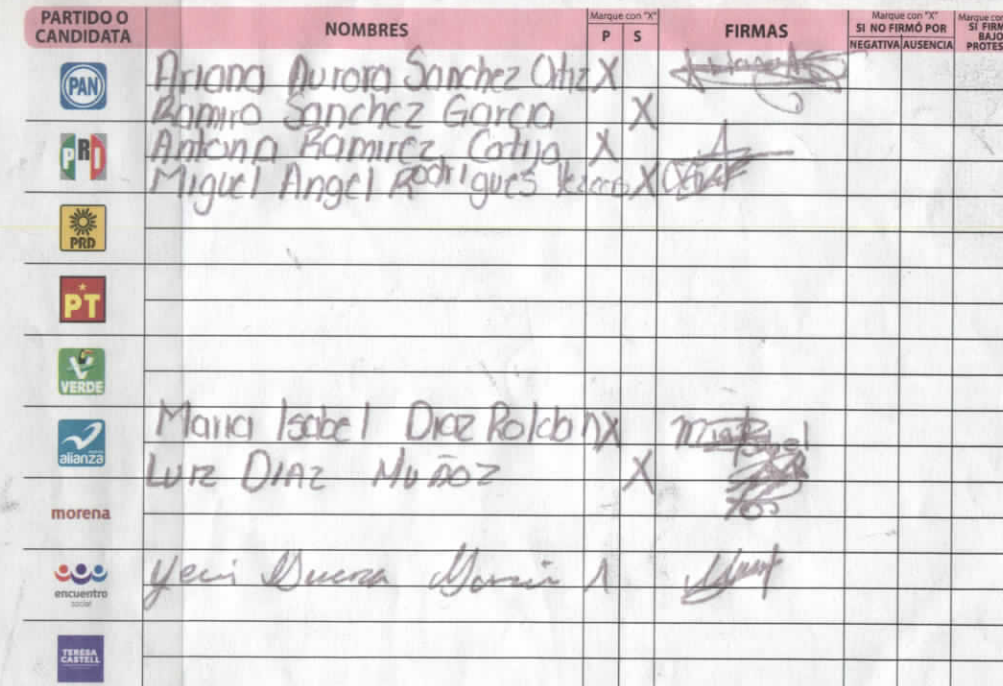 PARTIDO O CANDIDATA NOMBRES Marque con "X" P S FIRMAS Marque con "X" SI NO FIRMÓ POR NEGATIVA AUSENCIA Marque con SÍ FIRM BAJO PROTES
PAN Ariana Aurora Sanchez Ortiz X
Ramiro Sanchez Garcia X
PRI Antonia Ramirez X
Miguel Angel Rodrigues X
PRD
PT
VERDE
alianza Maria Isabel Diaz Roldan X
Luiz DIAZ MUÑOZ X
morena
encuentro social Yeni
TERESA CASTELL